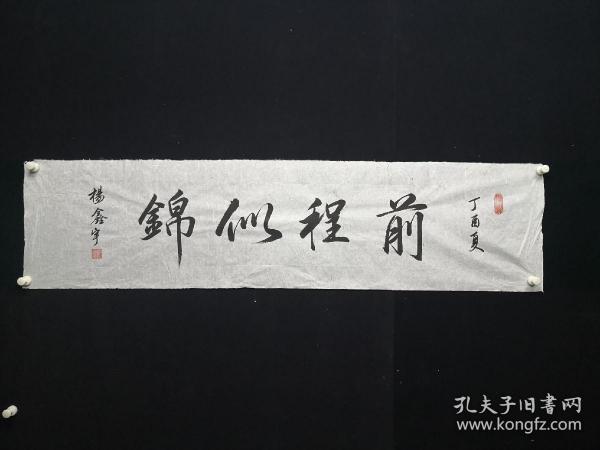 丁酉夏
前程似錦
楊鑫宇
孔夫子旧書网
www.kongfz.com